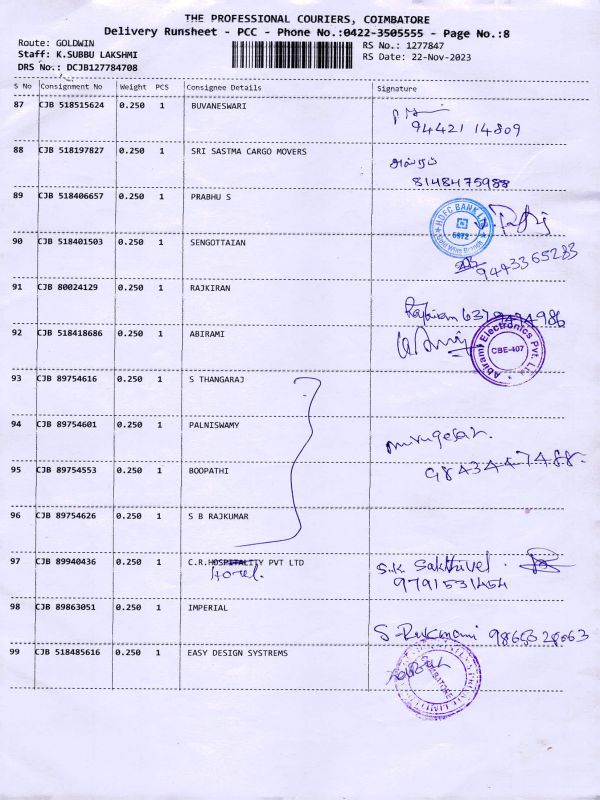 THE PROFESSIONAL COURIERS, COIMBATORE
Delivery Runsheet - PCC - Phone No.:0422-3505555 - Page No.:8
Route: GOLDWIN
Staff: K.SUBBU LAKSHMI
DRS No.: DCJB127784708
RS No.: 1277847
RS Date: 22-Nov-2023
S No Consignment No Weight PCS Consignee Details Signature
87 CJB 518515624 0.250 1 BUVANESWARI
94421 14809
88 CJB 518197827 0.250 1 SRI SASTMA CARGO MOVERS
8148475988
89 CJB 518406657 0.250 1 PRABHU S
HDFC BANK LTD
6972
90 CJB 518401503 0.250 1 SENGOTTAIAN
9443365283
91 CJB 80024129 0.250 1 RAJKIRAN
Rajkiran 6379474986
92 CJB 518418686 0.250 1 ABIRAMI
Abirami Electronics Pvt. Ltd
CBE-407
93 CJB 89754616 0.250 1 S THANGARAJ
94 CJB 89754601 0.250 1 PALNISWAMY
murugesan.
9843447488.
95 CJB 89754553 0.250 1 BOOPATHI
96 CJB 89754626 0.250 1 S B RAJKUMAR
97 CJB 89940436 0.250 1 C.R.HOSPITALITY PVT LTD
Hotel.
S.K. Sakthivel.
9791531454
98 CJB 89863051 0.250 1 IMPERIAL
S-Rukmani
99 CJB 518485616 0.250 1 EASY DESIGN SYSTREMS